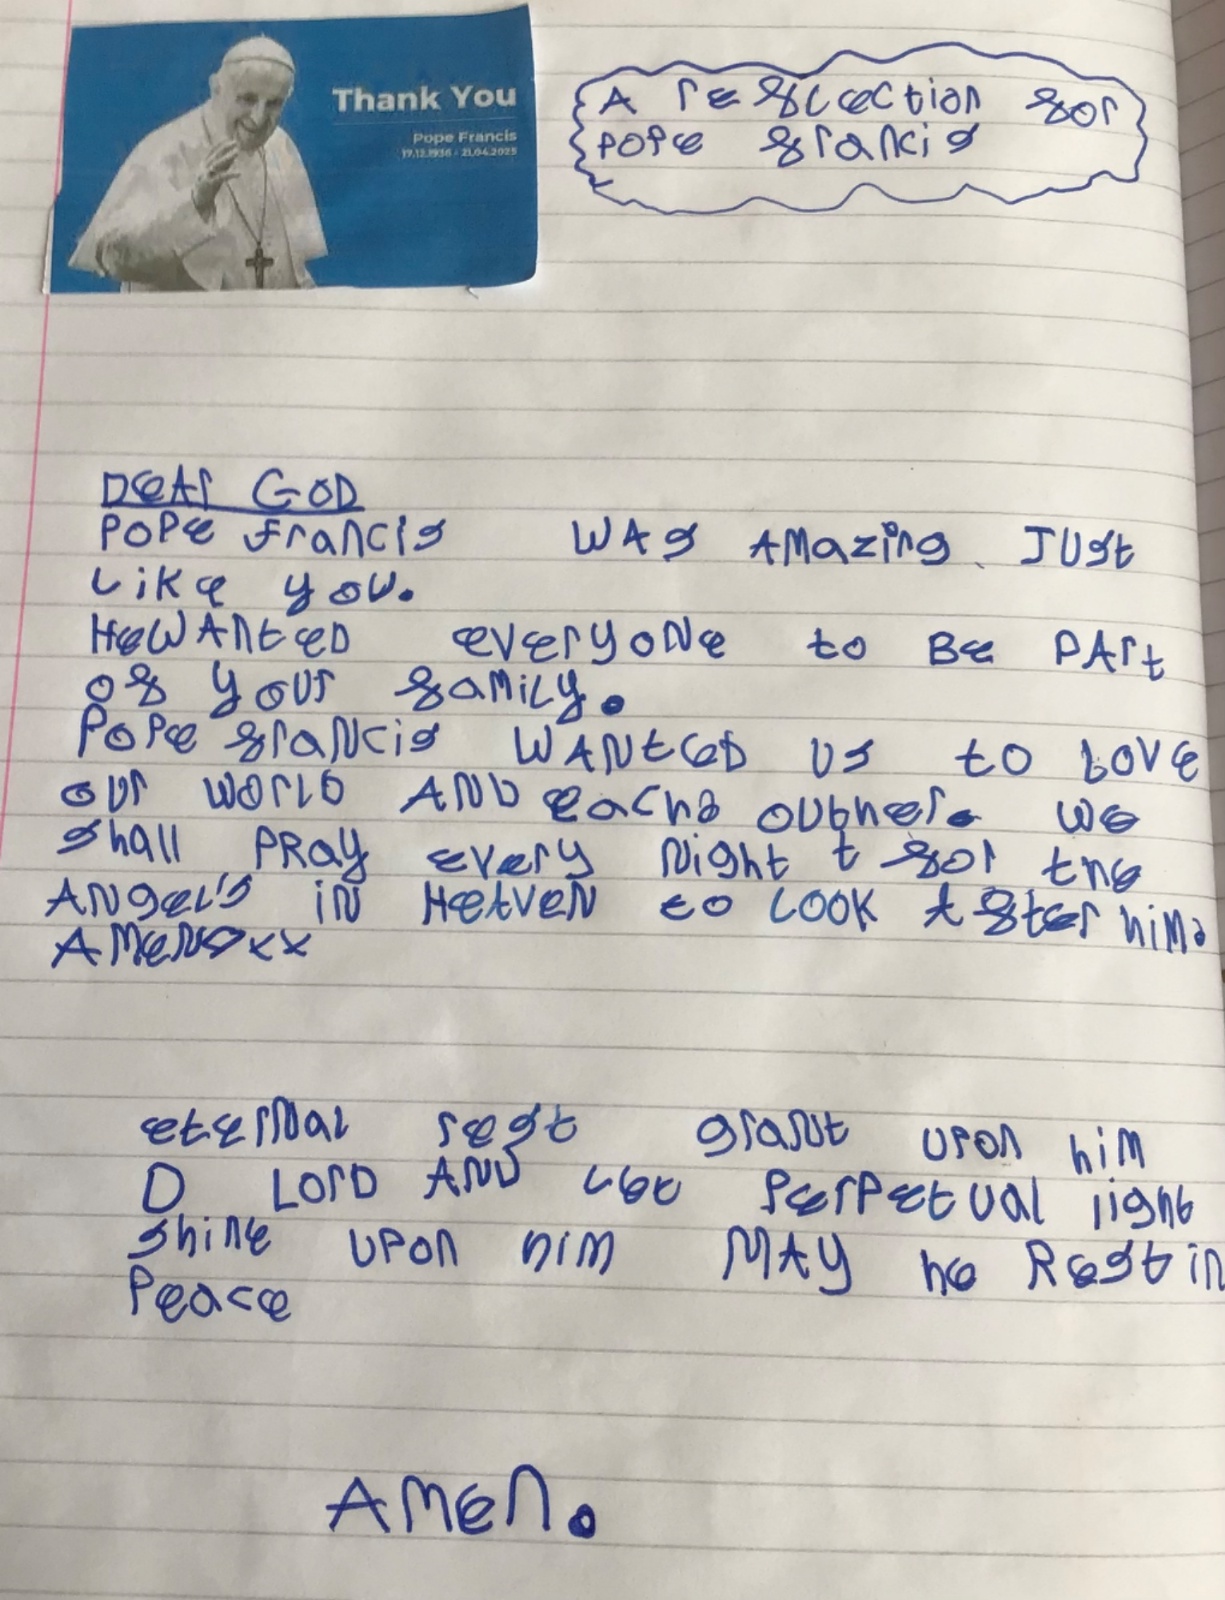 Thank You
Pope Francis
17.12.1936 - 21.04.2025
A reflection for
pope francis
Dear God
Pope francis was Amazing Just
Like you.
HeWAnted everyone to Be PArt
of your family.
Pope francis WANted us to Love
our world AND each outher. we
shall PRay every Night t for the
ANgel's iN HeAveN to Look After him.
AMeN xx
eternal rest grant upon him
O Lord AND let PerPetual light
shine upon him MAY he Rest in
Peace
AMen.